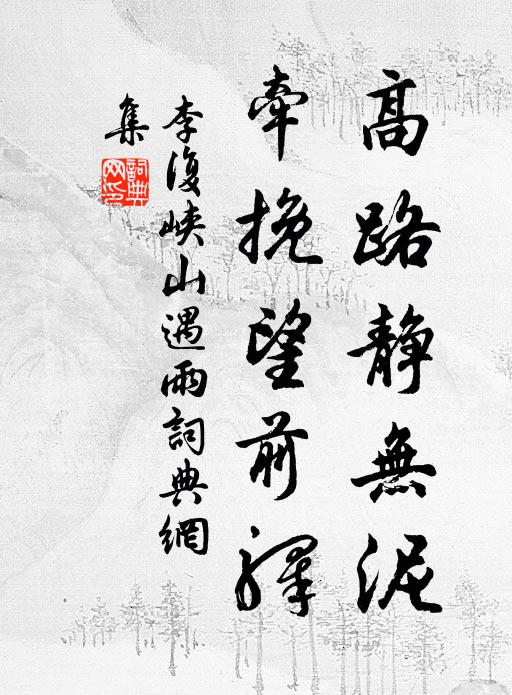 高路静無泥
牽挽望前驛
李復峽山遇雨詞典網
集
詞典網